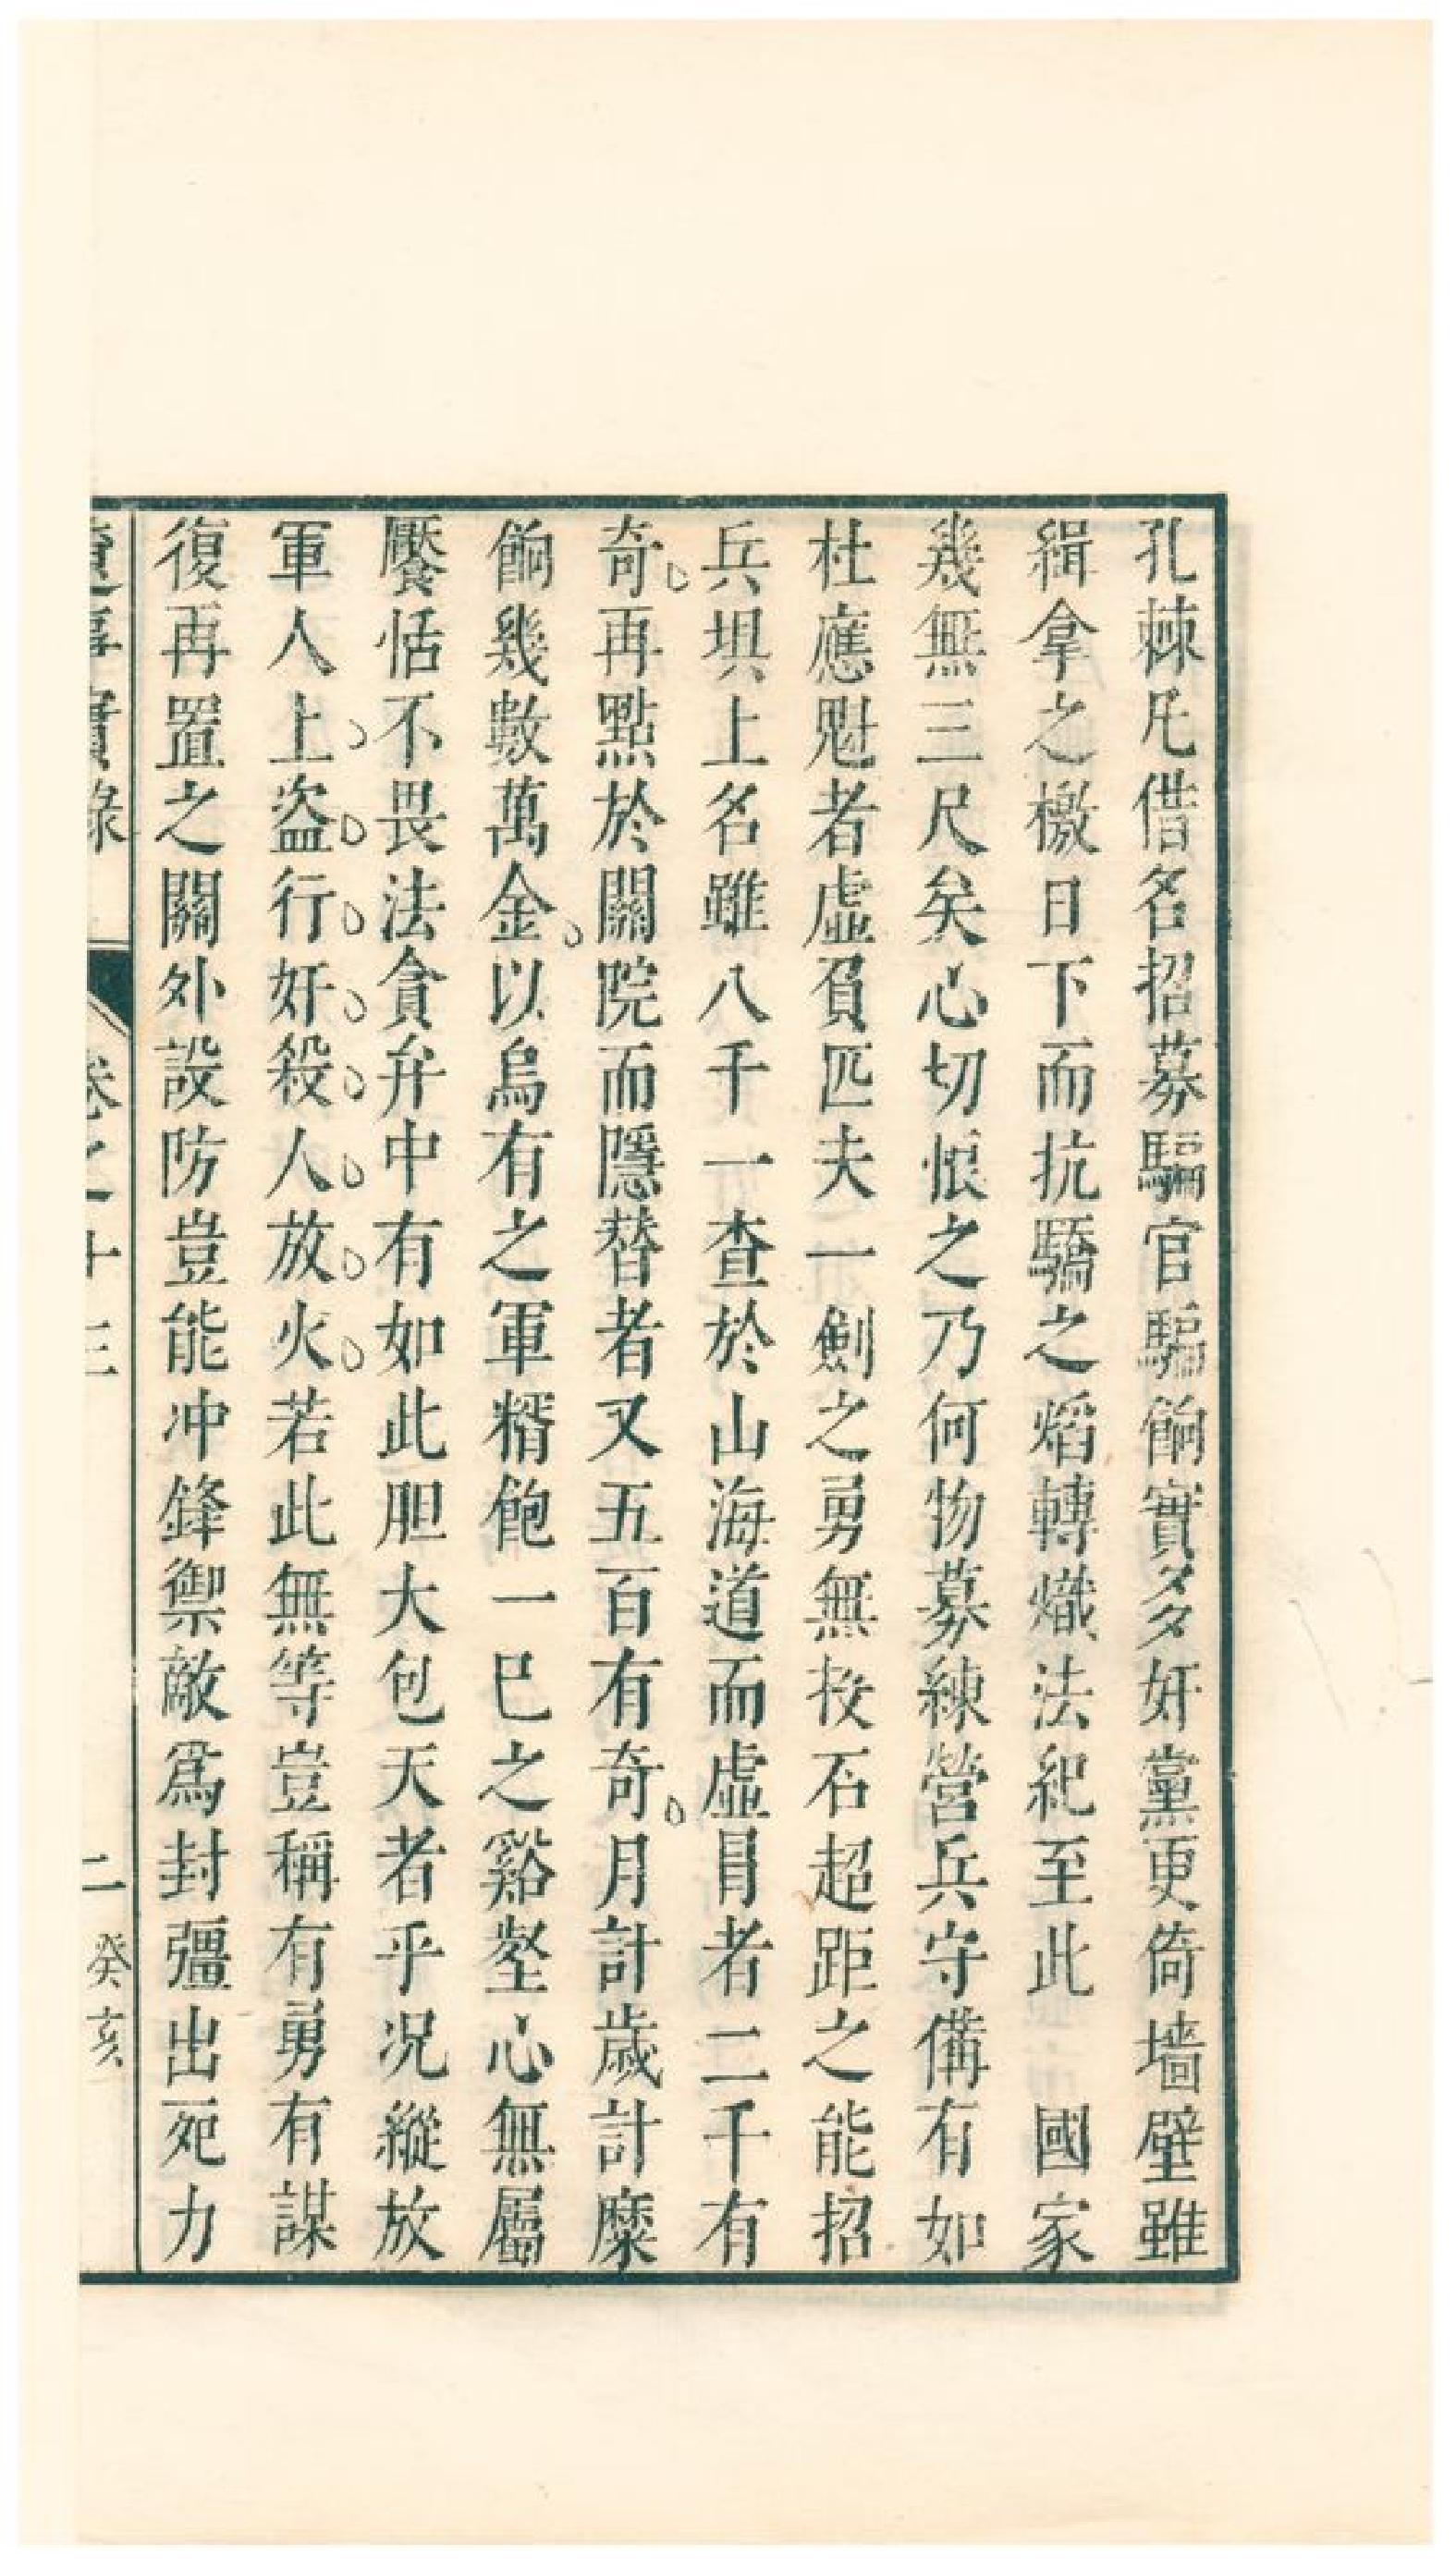 孔棘凡借名招募騙官騙餉實多奸黨更倚墻壁雖
緝拿之檄日下而抗驕之熖轉熾法紀至此　國家
幾無三尺矣心切恨之乃何物募練營兵守備有如
杜應魁者虛負匹夫一劍之勇無投石超距之能招
兵垻上名雖八千一查於山海道而虛冐者二千有
奇。再點於關院而隱替者又五百有奇。月計歲計糜
餉幾數萬金。以烏有之軍糈飽一巳之谿壑心無屬
饜恬不畏法貪弁中有如此胆大包天者乎况縱放
軍人上盜行奸殺人放火若此無等豈稱有勇有謀
復再置之關外設防豈能冲鋒禦敵爲封疆出死力
實錄　卷之十三　二　癸亥